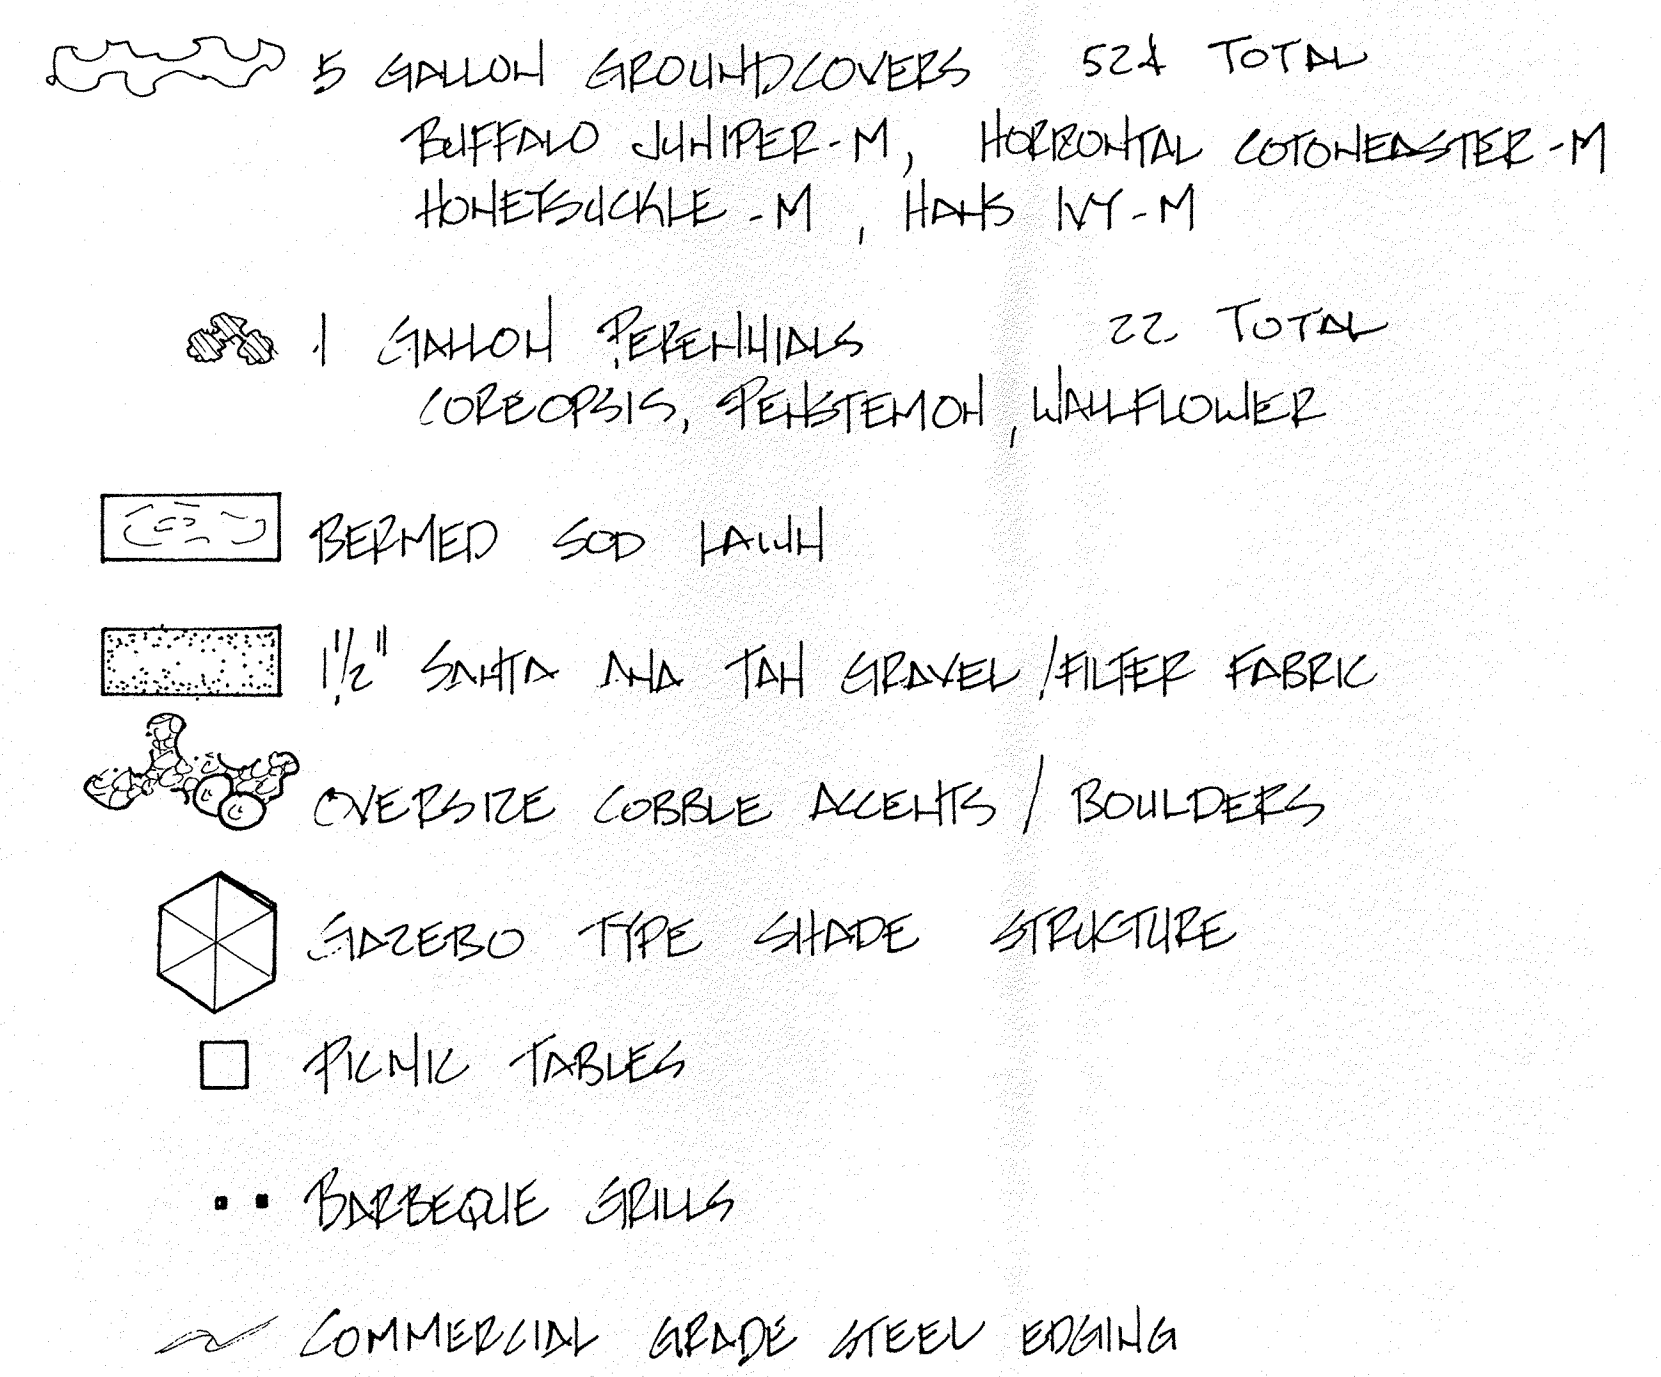 5 GALLON GROUNDCOVERS 524 TOTAL
BUFFALO JUNIPER-M, HORIZONTAL COTONEASTER-M
HONEYSUCKLE-M, HAHS IVY-M
1 GALLON PERENNIALS 22 TOTAL
COREOPSIS, PENSTEMON, WALLFLOWER
BERMED SOD LAWN
1 1/2" SANTA ANA TAN GRAVEL/FILTER FABRIC
OVERSIZE COBBLE ACCENTS / BOULDERS
GAZEBO TYPE SHADE STRUCTURE
PICNIC TABLES
BARBEQUE GRILLS
COMMERCIAL GRADE STEEL EDGING